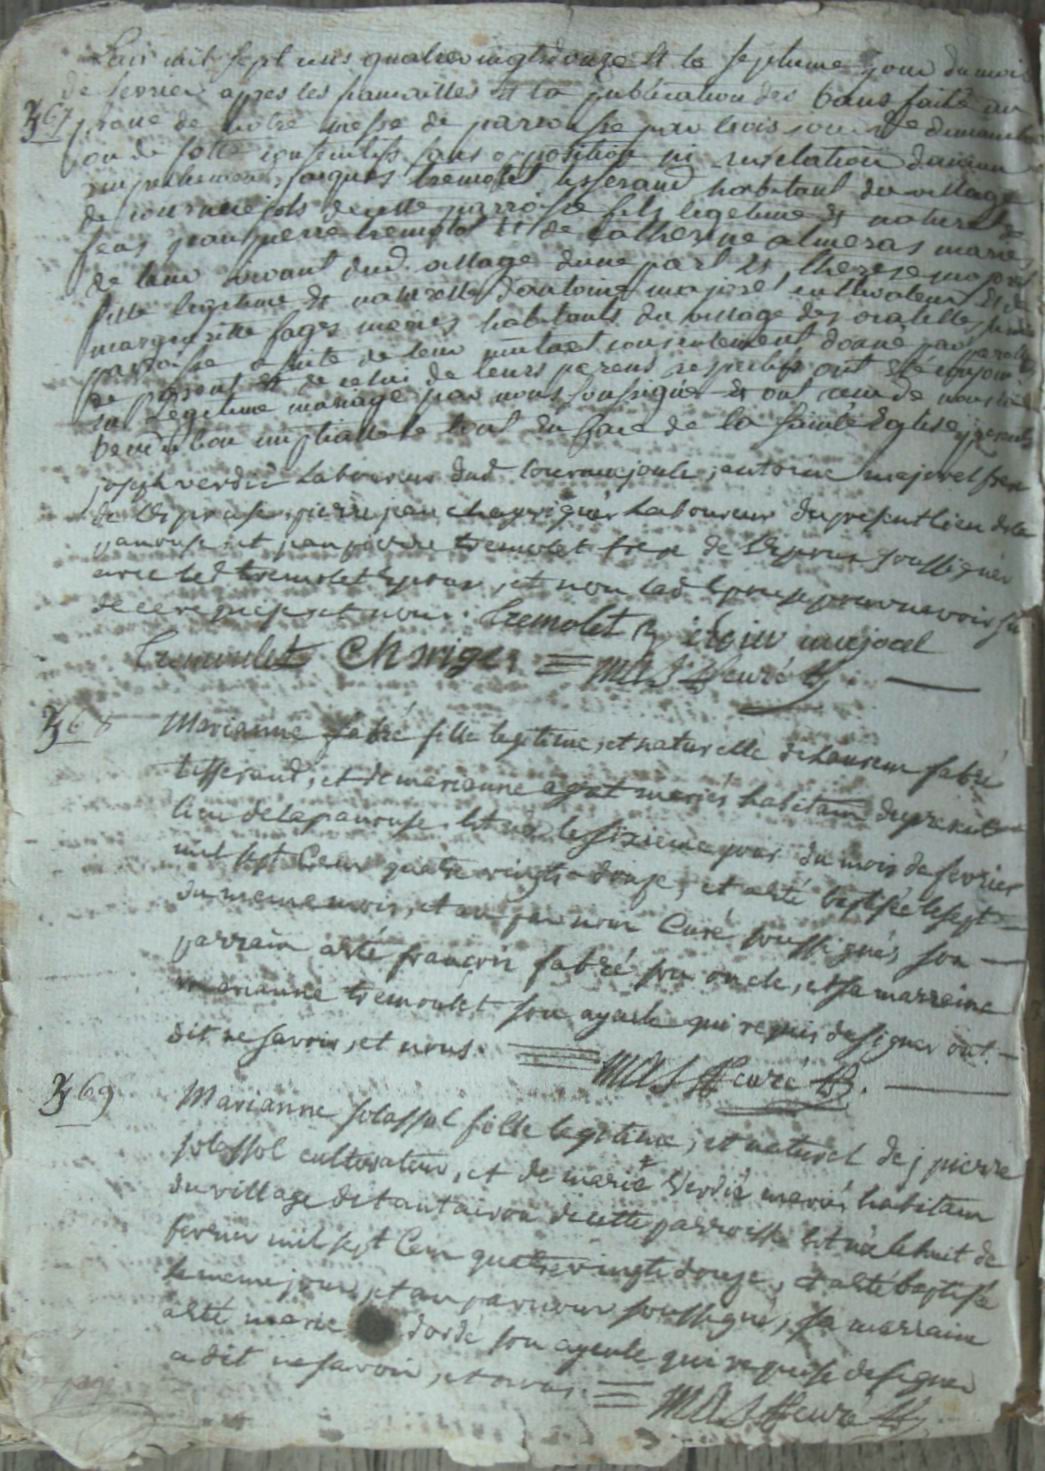 L'an mil sept cens quatrevingtdouze et le septieme jour du mois
de fevrier apres les fiancailles et la publication des bans faite au
367 prone de notre messe de parroisse par trois jours de dimanche
ou de fette consecutifs sans opposition ni revelation d'aucun
empechement, jacques tremolet tisserand habitant du village
de cette parroisse fils legitime et naturel de
feus jean pierre tremolet et de catherine almeras mariés
de leur vivant dud. village d'une part et therese majorel
fille legitime et naturelle d'antoine majorel cultivateur et de
marguerite fages mariés habitants du village des
parroisse a suite de leur mutuel consentement donné par parolles
de present et de celui de leurs parens respectifs ont été conjoins
en legitime mariage par nous soussigné et ont receu de nous la
benediction nuptialle le tout en face de la sainte Eglise, presents
joseph verdié laboureur dud antoine majorel frere
de l'epouse, pierre jean laboureur du present lieu de la
panouse, et jean pierre tremolet frere de l'epoux soussignés
avec led tremolet epoux, et non lad epouse pour ne savoir
de ce requise, et nous. Tremolet majorel
Tremoulet = MAS curé
368 Marianne fabré fille legitime, et naturelle de laurens fabré
tisserand, et de marianne agat mariés habitans du present
lieu de lapanouse est née le sixieme jour du mois de fevrier
mil sept Cens quatre vingts-douze, et a été baptisée le sept
du meme mois, et an par nous Curé soussigné, son
parrain a été françois fabré son oncle, et sa marraine
marianne tremoulet son ayeule qui requis de signer ont
dit ne savoir, et nous. MAS curé
369 Marianne solassol fille legitime, et naturel de j pierre
solassol cultivateur, et de marie Verdié mariés habitans
du village de de cette parroisse est née le huit de
fevrier mil sept Cens quatrevingtsdouze, et a été baptisée
le meme jour, et an par nous soussigné, sa marraine
a été marie dordé son ayeule qui requise de signer
a dit ne savoir, et nous. = MAS curé